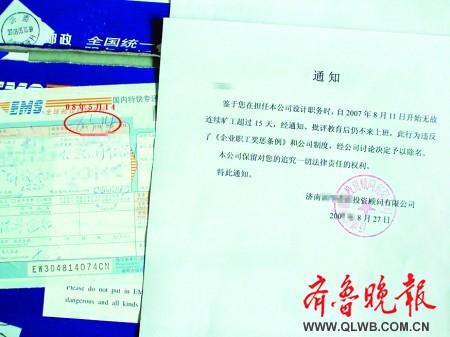 邮政 全国统一
EMS
国内特快专递
08年5月14
EW304814074CN
Please do not put in EM
dangerous and all kinds
通 知
鉴于您在担任本公司设计职务时，自 2007 年 8 月 11 日开始无故
连续矿工超过 15 天，经通知、批评教育后仍不来上班。此行为违反
了《企业职工奖惩条例》和公司制度，经公司讨论决定予以除名。
本公司保留对您的追究一切法律责任的权利。
特此通知。
济南 投资顾问有限公司
年 8 月 27 日
齐鲁晚报
WWW.QLWB.COM.CN